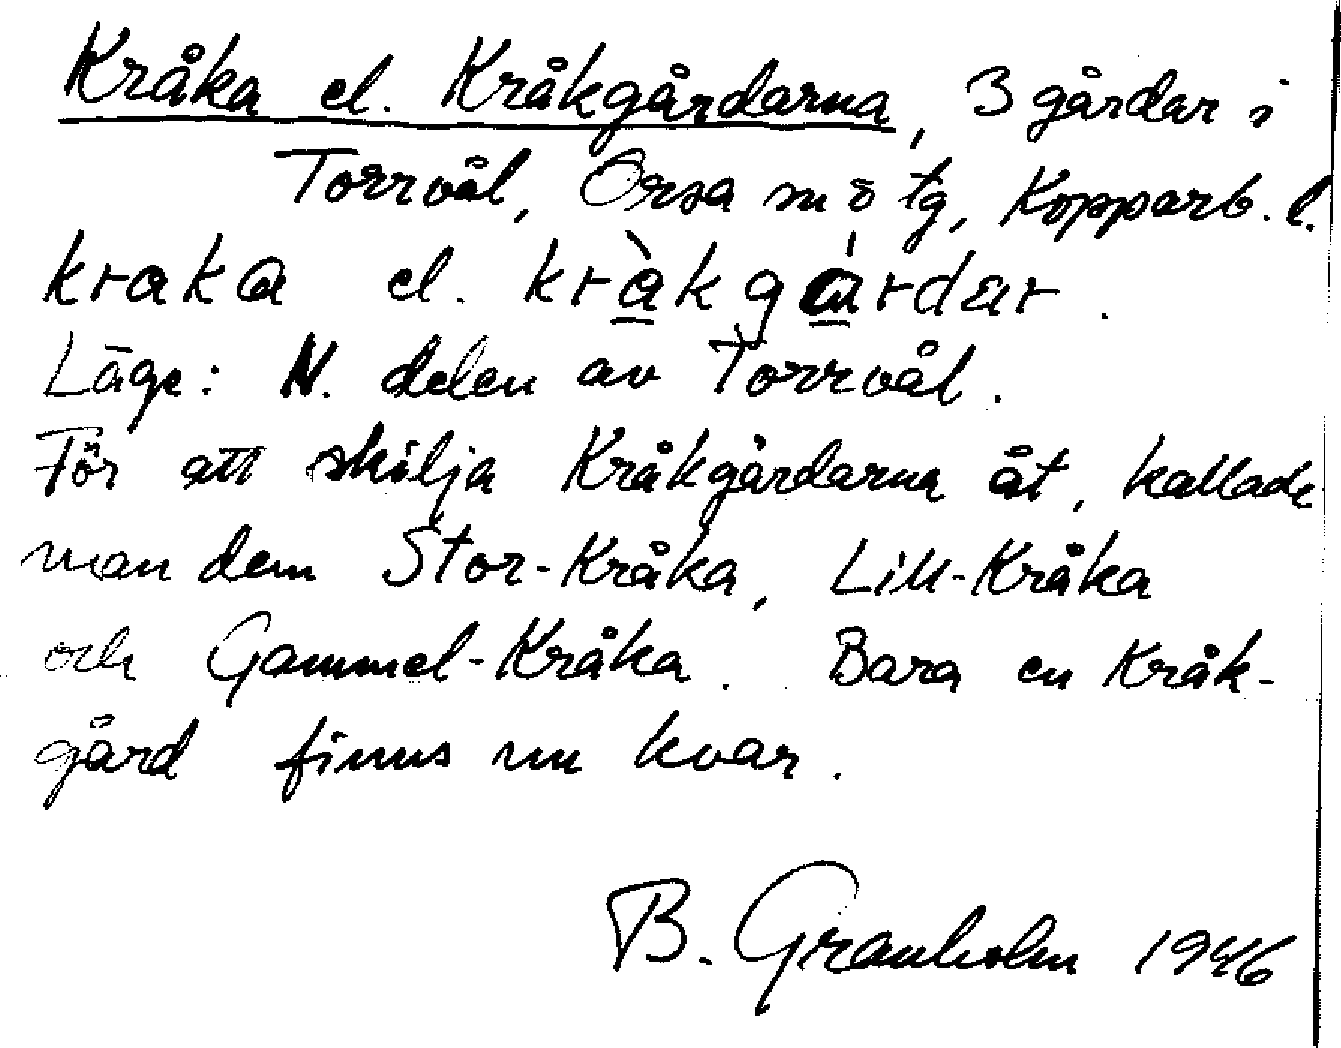 Kråka el. Kråkgårdarna, 3 gårdar i
Torrvål, Orsa sn ö tg, Kopparb. l.
kraka el. kràkgárdar.
Läge: N. delen av Torrvål.
För att skilja Kråkgårdarna åt, kallade
man dem Stor-Kråka, Lill-Kråka
och Gammel-Kråka. Bara en Kråk-
gård finns nu kvar.
B. Granholm 1946